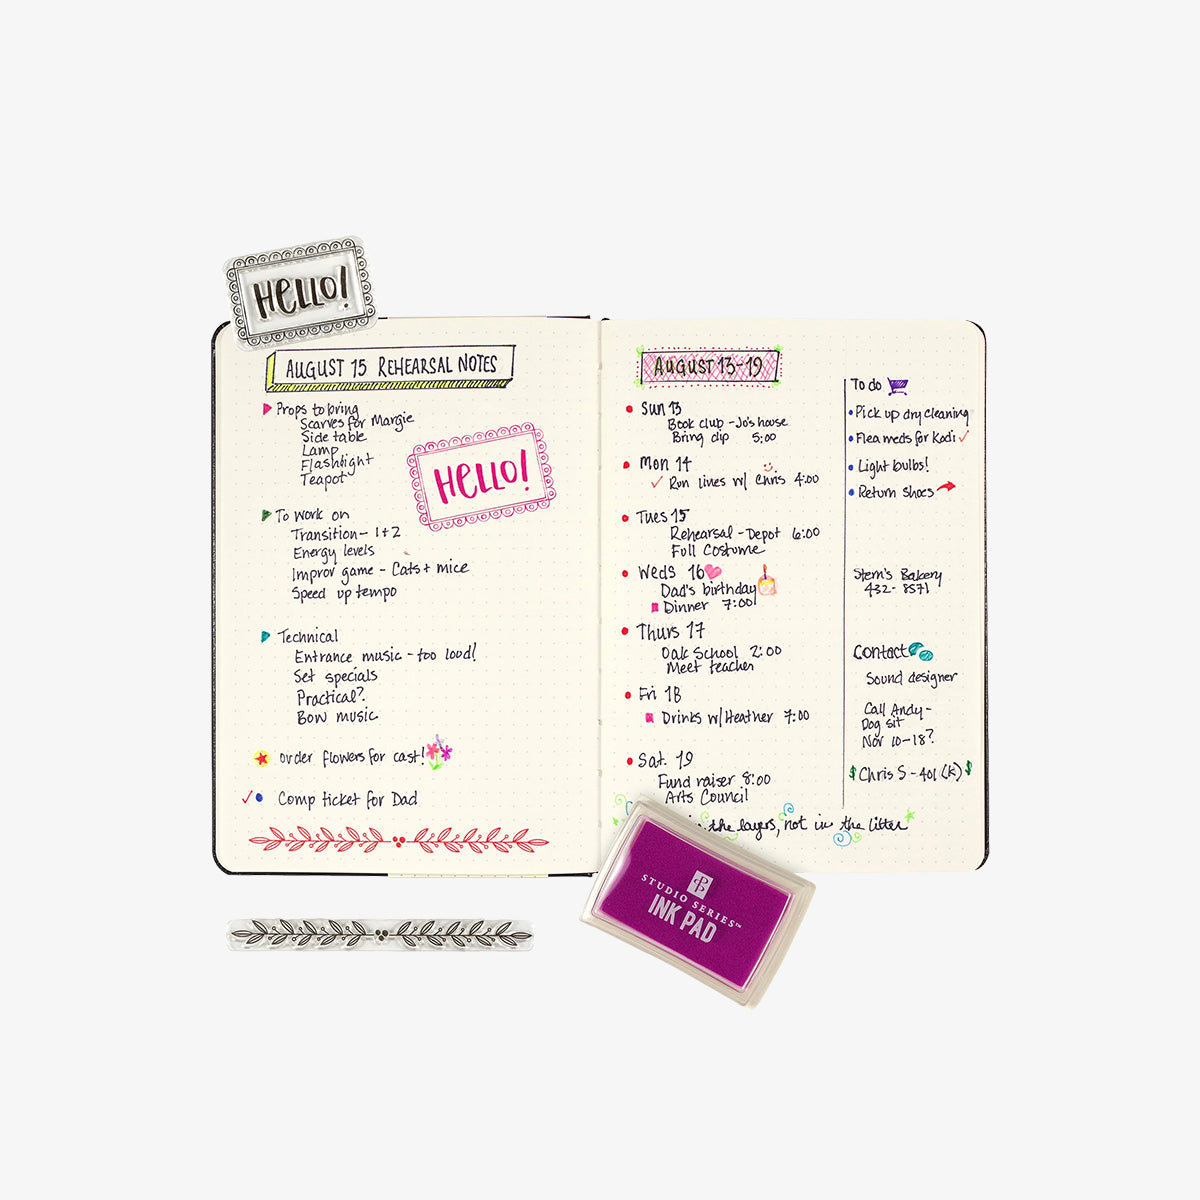 HELLO!
AUGUST 15 REHEARSAL NOTES
Props to bring
Scarves for Margie
Side table
Lamp
Flashlight
Teapot
HELLO!
To work on
Transition - 1+2
Energy levels
Improv game - Cats + mice
Speed up tempo
Technical
Entrance music - too loud!
Set specials
Practical?
Bow music
order flowers for cast!
Comp ticket for Dad
AUGUST 13-19
Sun 13
Book club - Jo's house
Bring dip 5:00
Mon 14
Run lines w/ Chris 4:00
Tues 15
Rehearsal - Depot 6:00
Full Costume
Weds 16
Dad's birthday
Dinner 7:00
Thurs 17
Oak School 2:00
Meet teacher
Fri 18
Drinks w/Heather 7:00
Sat. 19
Fund raiser 8:00
Arts Council
the layers, not in the litter
To do
Pick up dry cleaning
Flea meds for Kodi
Light bulbs!
Return shoes
Stern's Bakery
432-8571
Contact
Sound designer
Call Andy -
Dog sit
Nov 10-18?
$ Chris S - 401(K) $
STUDIO SERIES™
INK PAD